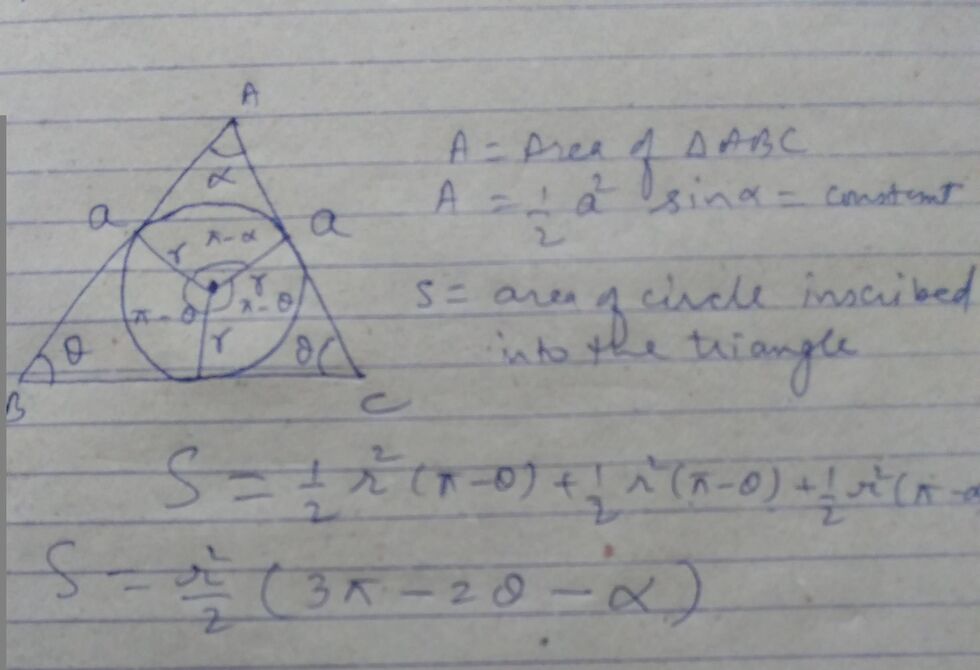 A
α
a
a
π-α
r
r
π-θ
π-θ
r
θ
θ
B
C
A = Area of ΔABC
A = 1/2 a² sinα = constant
S = area of circle inscribed
into the triangle
S = 1/2 r² (π-θ) + 1/2 r² (π-θ) + 1/2 r² (π-α
S = r²/2 (3π - 2θ - α)